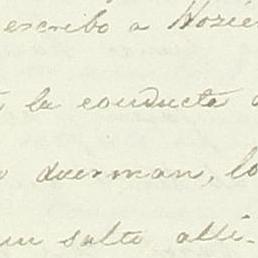 escribo a Nozie
la conducta
duerman, lo
un salto allí-